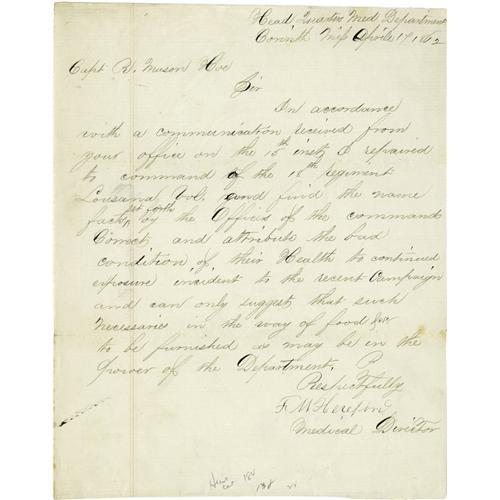 Head Quarters Med Department
Corinth Miss Aprile 17 1862
Capt R. Mason Hoe
Sir
In accordance
with a communication received from
your office on the 15th inst, I repaired
to command of the 18th Regiment
Lousana Vol. and find the name
facts set forth by the Offices of the command
Correct, and attribute the bad
condition of their Health to continued
exposure incident to the recent Campaign
and can only suggest that such
Necessaries in the way of food &c
to be furnished as may be in the
power of the Department.
Respectfully
F. M. Hereford
Medical Director
184
188